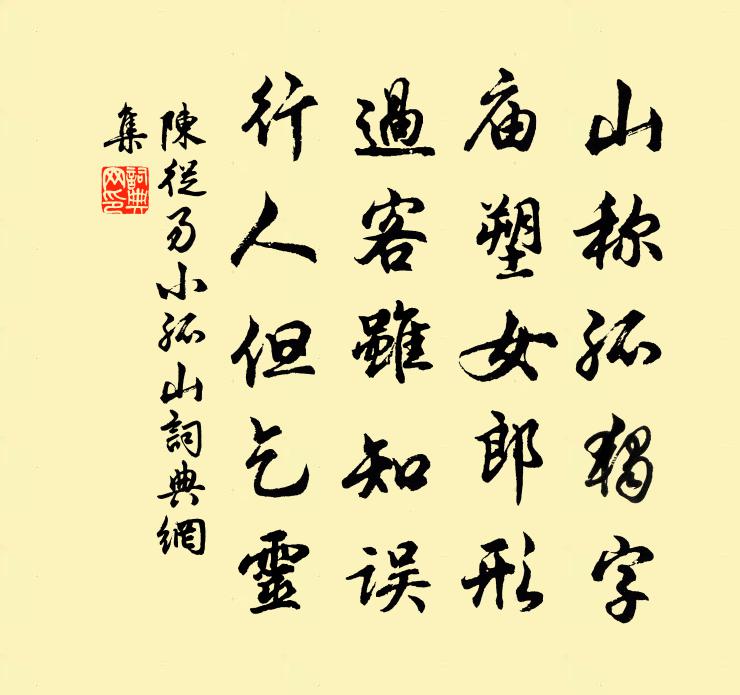 山称孤獨字
庙塑女郎形
過客雖知误
行人但乞靈
陳從易小孤山詞典網
集
詞典
网印